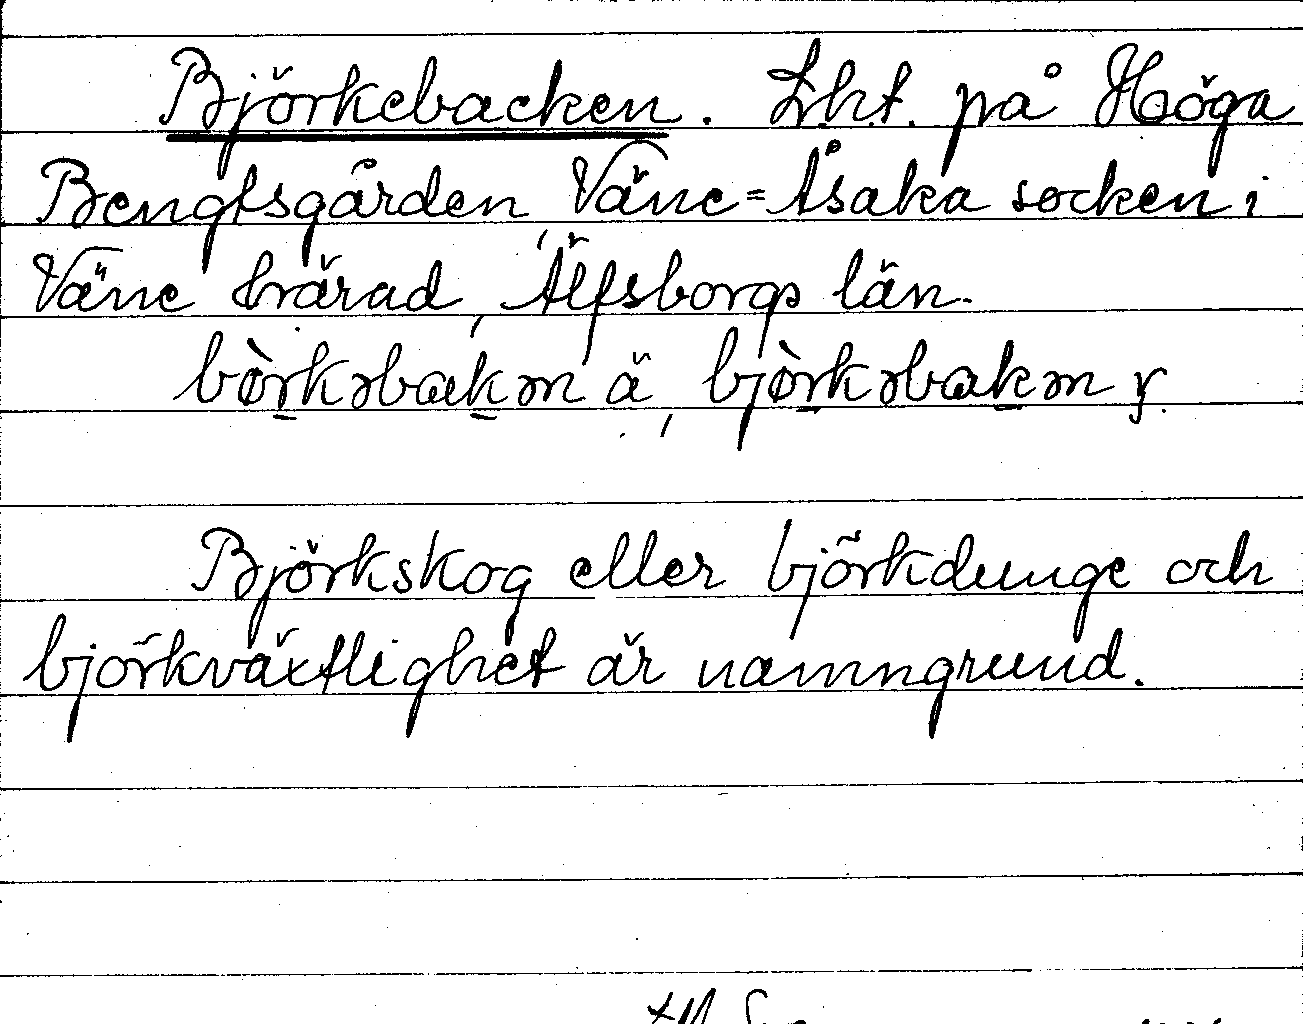 Björkebacken. Lht. på Höga
Bengtsgården, Väne=Åsaka socken i
Väne härad, Älfsborgs län.
bòrkəbakən ä, bjòrkəbakən y.
Björkskog eller björkdunge och
björkväxtlighet är namngrund.